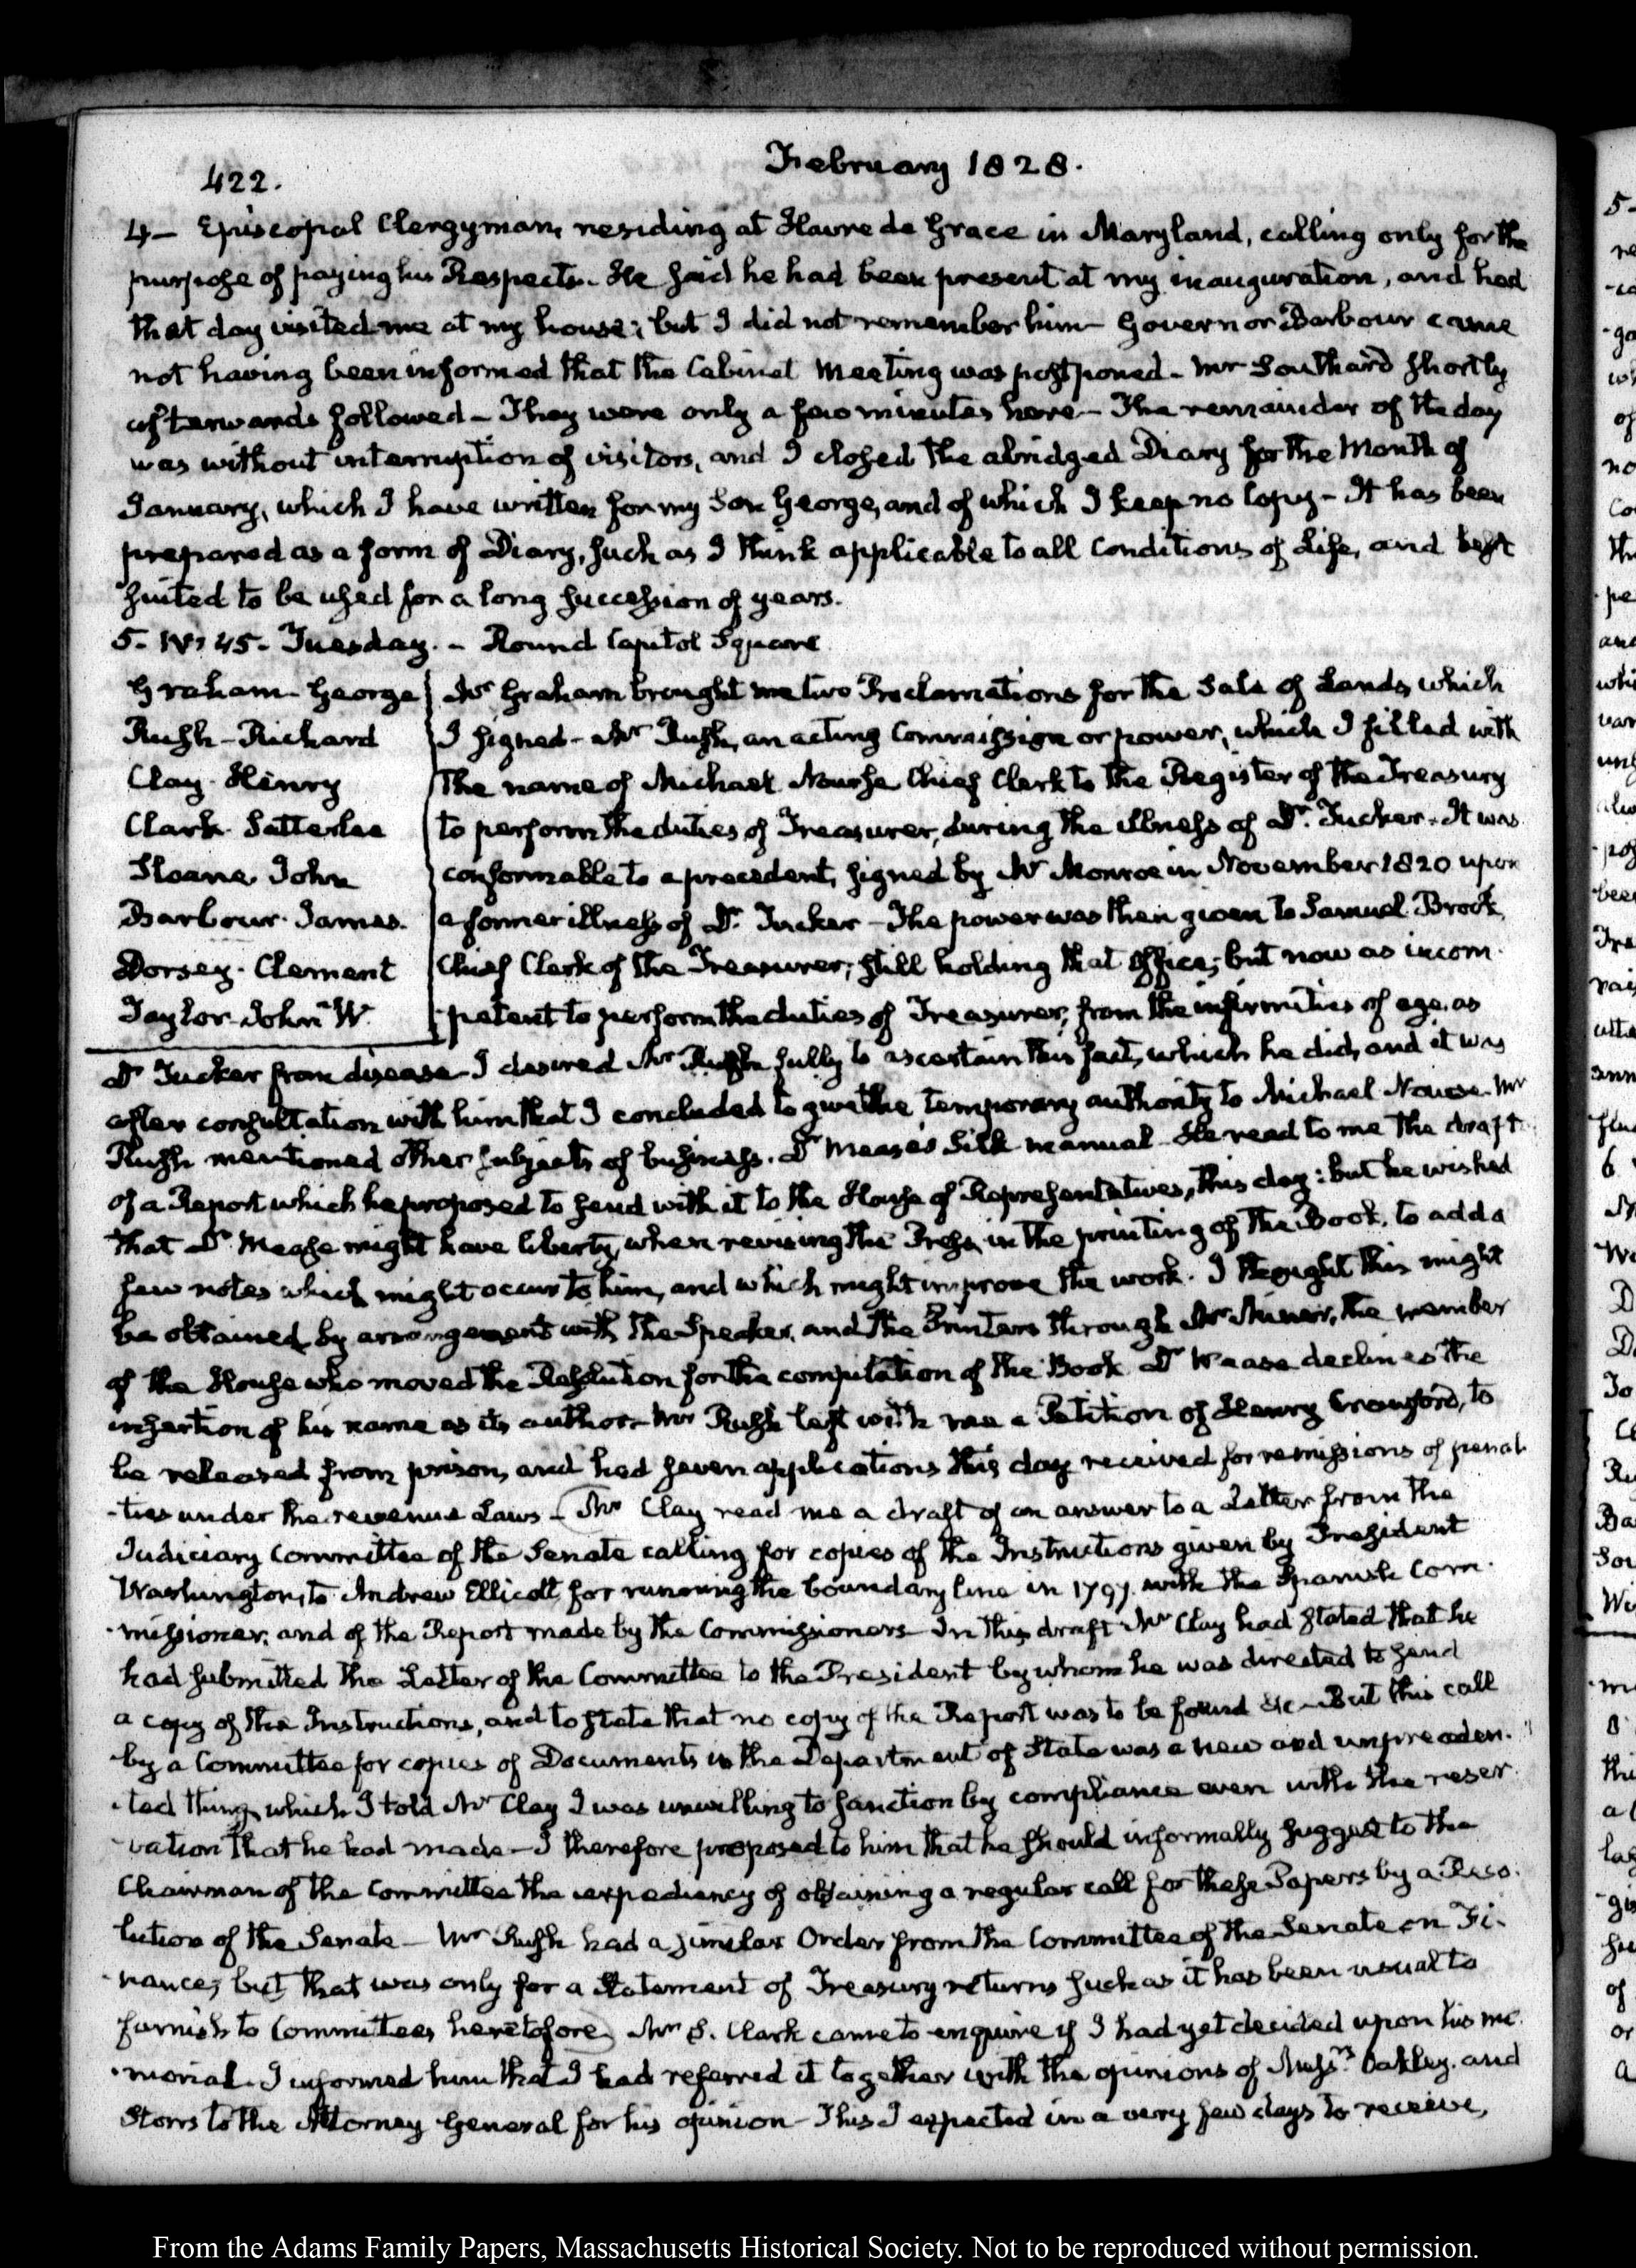 422.
February 1828.
4— Episcopal Clergyman, residing at Havre de Grace in Maryland, calling only for the
purpose of paying his Respects. He said he had been present at my inauguration, and had
that day visited me at my house; but I did not remember him— Governor Barbour came
not having been informed that the Cabinet Meeting was postponed— Mr Southard shortly
afterwards followed— They were only a few minutes here— The remainder of the day
was without interruption of visitors, and I closed the abridged Diary for the Month of
January, which I have written for my Son George, and of which I keep no Copy— It has been
prepared as a form of Diary, such as I think applicable to all Conditions of Life, and best
suited to be used for a long succession of years.
5. IV: 45. Tuesday. — Round Capitol Square
Graham— George
Rush— Richard
Clay. Henry
Clark. Satterlee
Sloane John
Barbour. James.
Dorsey. Clement
Taylor. John W.
Mr Graham brought me two Proclamations for the Sale of Lands, which
I signed— Mr Rush, an acting Commission or power, which I filled with
the name of Michael Nourse Chief Clerk to the Register of the Treasury
to perform the duties of Treasurer, during the illness of Dr. Tucker. It was
conformable to a precedent, signed by Mr Monroe in November 1820 upon
a former illness of Dr. Tucker— The power was then given to Samuel Brook,
Chief Clerk of the Treasurer, still holding that Office; but now as incom-
-petent to perform the duties of Treasurer, from the infirmities of age, as
Dr Tucker from disease— I desired Mr Rush fully to ascertain this fact, which he did, and it was
after consultation with him that I concluded to give the temporary authority to Michael Nourse. Mr
Rush mentioned other subjects of business. Dr Mease's Silk manual— He read to me the draft
of a Report which he proposed to send with it to the House of Representatives, this day: but he wished
that Dr Mease might have liberty, when revising the Press, in the printing of the Book, to add a
few notes which might occur to him, and which might improve the work. I thought this might
be obtained by arrangement with the Speaker, and the Printers through Mr Miner, the member
of the House who moved the Resolution for the compilation of the Book. Dr Mease declines the
insertion of his name as its author— Mr Rush left with me a Petition of Henry Crawford, to
be released from prison, and had seven applications this day received for remissions of penal-
-ties under the revenue Laws— Mr Clay read me a draft of an answer to a Letter from the
Judiciary Committee of the Senate calling for copies of the Instructions given by President
Washington, to Andrew Ellicott for running the boundary line in 1797. with the Spanish Com-
-missioner; and of the Report made by the Commissioners— In this draft Mr Clay had stated that he
had submitted the Letter of the Committee to the President by whom he was directed to send
a copy of the Instructions, and to state that no copy of the Report was to be found &c— But this call
by a Committee for copies of Documents in the Department of State was a new and unpreceden-
-ted thing, which I told Mr Clay I was unwilling to sanction by compliance even with the reser-
-vation that he had made— I therefore proposed to him that he should informally suggest to the
Chairman of the Committee the expediency of obtaining a regular call for these Papers by a Reso-
lution of the Senate— Mr Rush had a similar Order from the Committee of the Senate on Fi-
-nance; but that was only for a Statement of Treasury returns such as it has been usual to
furnish to Committees heretofore. Mr S. Clark came to enquire if I had yet decided upon his me-
-morial. I informed him that I had referred it together with the opinions of Messrs. Oakley, and
Storrs to the Attorney General for his opinion— This I expected in a very few days to receive,
From the Adams Family Papers, Massachusetts Historical Society. Not to be reproduced without permission.